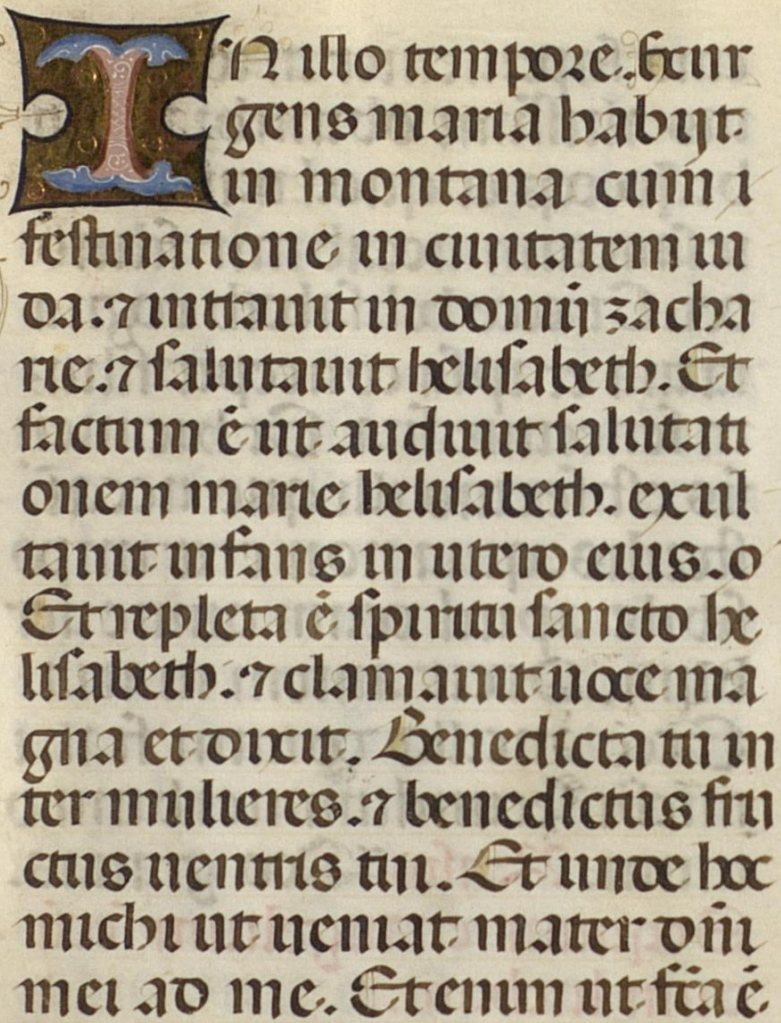 IN illo tempore. Exur
gens maria habijt
in montana cum i
festinatione in ciuitatem iu
da. ⁊ intrauit in domū zacha
rie. ⁊ salutauit helisabeth. Et
factum ē ut audiuit salutati
onem marie helisabeth. exul
tauit infans in utero eius. o
Et repleta ē spiritu sancto he
lisabeth. ⁊ clamauit uoce ma
gna et dixit. Benedicta tu in
ter mulieres. ⁊ benedictus fru
ctus uentris tui. Et unde hoc
michi ut ueniat mater dn̄i
mei ad me. Et enim ut fc̄a ē